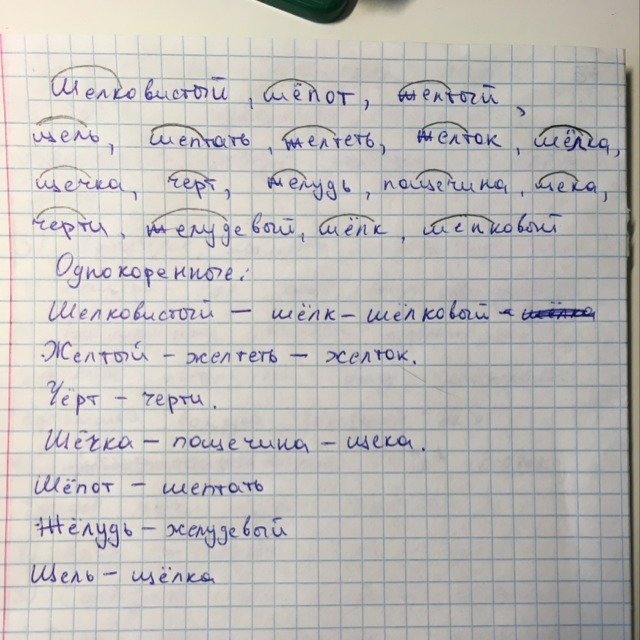 Шелковистый, шёпот, желтый,
щель, шептать, желтеть, желток, щёлка,
щечка, черт, желудь, пощечина, щека,
черти, желудевый, шёлк, шёлковый
Однокоренные:
Шелковистый - шёлк - шёлковый -
Желтый - желтеть - желток.
Чёрт - черти.
Щёчка - пощечина - щека.
Шёпот - шептать
Жёлудь - желудевый
Щель - щёлка